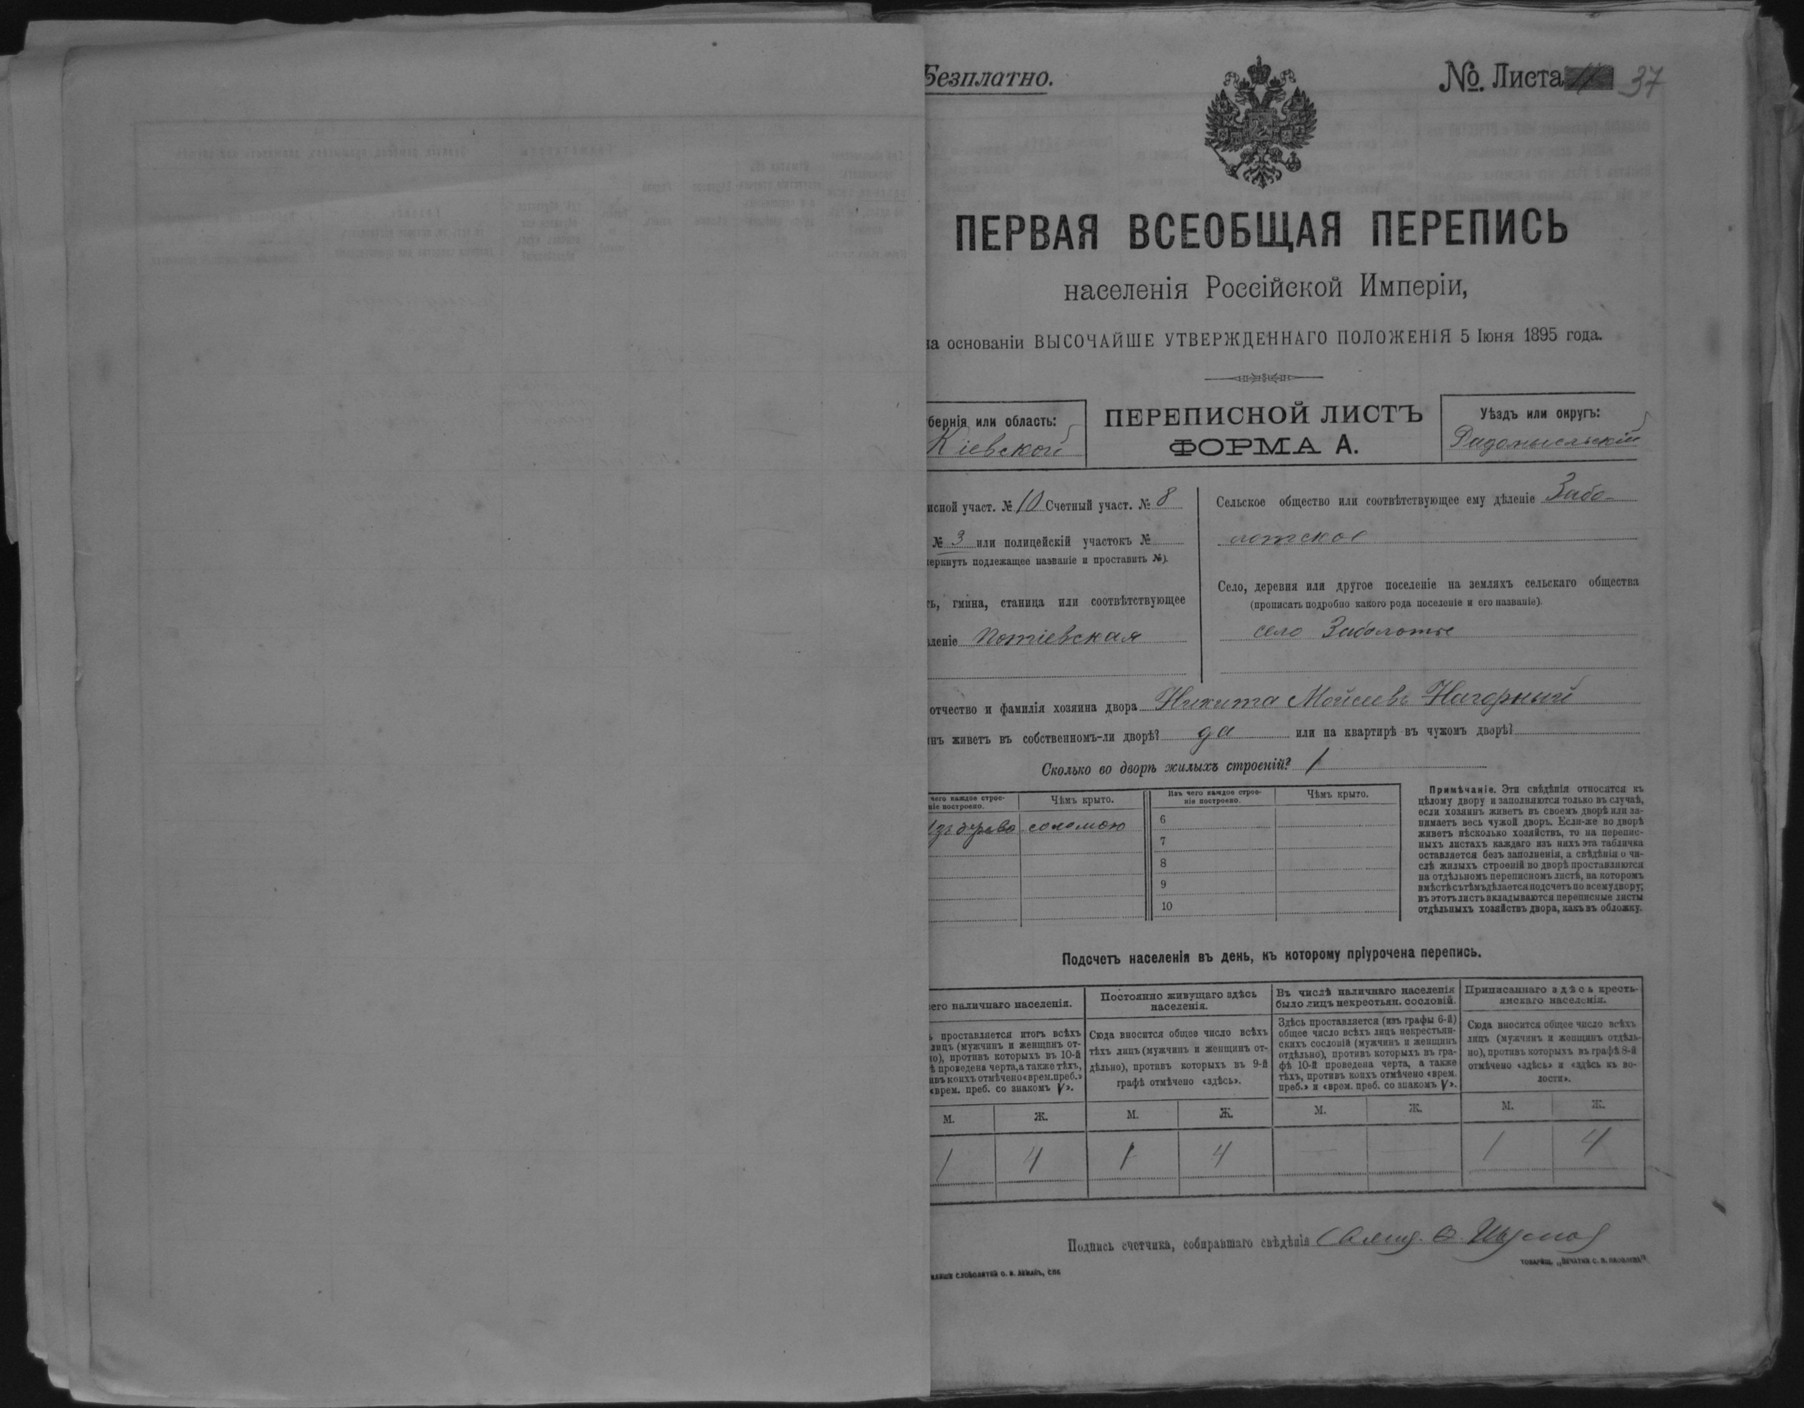 Безплатно.
№. Листа 37
ПЕРВАЯ ВСЕОБЩАЯ ПЕРЕПИСЬ
населенія Россійской Имперіи,
на основаніи ВЫСОЧАЙШЕ УТВЕРЖДЕННАГО ПОЛОЖЕНІЯ 5 Іюня 1895 года.
бернія или область:
Кіевской
ПЕРЕПИСНОЙ ЛИСТЪ
ФОРМА А.
Уѣздъ или округъ:
Радомысльскій
исной участ. № 10 Счетный участ. № 8
№ 3 или полицейскій участокъ №
черкнуть подлежащее названіе и проставить №).
ть, гмина, станица или соотвѣтствующее
леніе Потіевская
Сельское общество или соотвѣтствующее ему дѣленіе Забо-
лотское
Село, деревня или другое поселеніе на земляхъ сельскаго общества
(прописать подробно какого рода поселеніе и его названіе).
село Заболотье
отчество и фамилія хозяина двора Никита Мойсеевъ Нагорный
инъ живетъ въ собственномъ-ли дворѣ? да или на квартирѣ въ чужомъ дворѣ?
Сколько во дворѣ жилыхъ строеній? 1
чего каждое строе-
ніе построено.
Чѣмъ крыто.
Изъ чего каждое строе-
ніе построено.
Чѣмъ крыто.
соломою
6
7
8
9
10
Примѣчаніе. Эти свѣдѣнія относятся къ
цѣлому двору и заполняются только въ случаѣ,
если хозяинъ живетъ въ своемъ дворѣ или за-
нимаетъ весь чужой дворъ. Если-же во дворѣ
живетъ нѣсколько хозяйствъ, то на перепис-
ныхъ листахъ каждаго изъ нихъ эта табличка
оставляется безъ заполненія, а свѣдѣнія о чи-
слѣ жилыхъ строеній во дворѣ проставляются
на отдѣльномъ переписномъ листѣ, на которомъ
вмѣстѣ съ тѣмъ дѣлается подсчетъ по всему двору;
въ этотъ листъ вкладываются переписные листы
отдѣльныхъ хозяйствъ двора, какъ въ обложку.
Подсчетъ населенія въ день, къ которому пріурочена перепись.
его наличнаго населенія.
ь проставляется итогъ всѣхъ
лицъ (мужчинъ и женщинъ от-
но), противъ которыхъ въ 10-й
ѣ проведена черта, а также тѣхъ,
ивъ коихъ отмѣчено «врем. преб.»
«врем. преб. со знакомъ V».
М.
Ж.
1
4
Постоянно живущаго здѣсь
населенія.
Сюда вносится общее число всѣхъ
тѣхъ лицъ (мужчинъ и женщинъ от-
дѣльно), противъ которыхъ въ 9-й
графѣ отмѣчено «здѣсь».
М.
Ж.
1
4
Въ числѣ наличнаго населенія
было лицъ некрестьян. сословій.
Здѣсь проставляется (изъ графы 6-й)
общее число всѣхъ лицъ некрестьян-
скихъ сословій (мужчинъ и женщинъ
отдѣльно), противъ которыхъ въ гра-
фѣ 10-й проведена черта, а также
тѣхъ, противъ коихъ отмѣчено «врем.
преб.» и «врем. преб. со знакомъ V».
М.
Ж.
Приписаннаго здѣсь кресть-
янскаго населенія.
Сюда вносится общее число всѣхъ
лицъ (мужчинъ и женщинъ отдѣль-
но), противъ которыхъ въ графѣ 8-й
отмѣчено «здѣсь» и «здѣсь къ во-
лости».
М.
Ж.
1
4
Подпись счетчика, собиравшаго свѣдѣнія